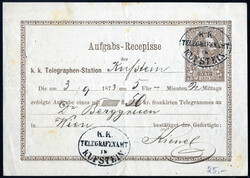 Aufgabs-Recepisse
k. k. Telegraphen-Station Kufstein
Die 3/9 1873 5 Uhr — Minuten
erfolgte Aufgabe eines mit fl. 50 kr. frankirten Telegrammes an
Dr Berggruen
in Wien bestätigt der Gefertigte:
K. K.
TELEGRAFENAMT
IN
KUFSTEIN
K. K.
TELEGRAFENAMT
KUFSTEIN
25.-